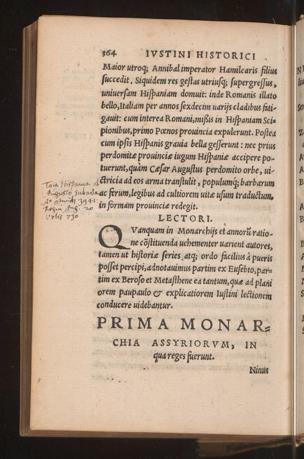 364 IVSTINI HISTORICI
Maior utroq; Annibal imperator Hamilcaris filius
succedit, Siquidem res gestas utriusq; supergressus,
uniuersam Hispaniam domuit: inde Romanis illato
bello, Italiam per annos sexdecim uarijs cladibus fati-
gauit: cum interea Romani, missis in Hispaniam Sci-
pionibus, primo Pœnos prouincia expulerunt. Postea
cum ipsis Hispanis grauia bella gesserunt: nec prius
perdomitæ prouinciæ iugum Hispaniæ accipere po-
tuerunt, quàm Cæsar Augustus perdomito orbe, ui-
ctricia ad eos arma transtulit, populumq; barbarum
ac ferum, legibus ad cultiorem uitæ usum traductum,
in formam prouinciæ redegit.
Augusto
20
730
LECTORI.
QVanquam in Monarchijs et annorũ ratio-
ne cõstituenda uehementer uarient autores,
tamen ut historiæ series, atq; ordo facilius à pueris
posset percipi, adnotauimus partim ex Eusebio, par-
tim ex Beroso et Metasthene ea tantum, quæ ad plani
orem paupaulo & explicatiorem Iustini lectionem
conducere uidebantur.
PRIMA MONAR-
CHIA ASSYRIORVM, IN
qua reges fuerunt.
Ninus